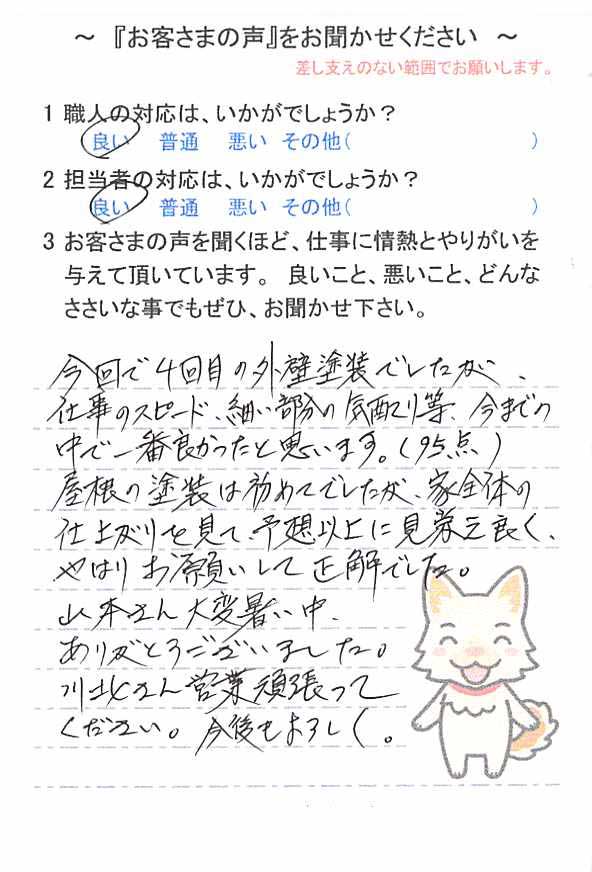 ～ 『お客さまの声』をお聞かせください ～
差し支えのない範囲でお願いします。
1 職人の対応は、いかがでしょうか？
良い 普通 悪い その他( )
2 担当者の対応は、いかがでしょうか？
良い 普通 悪い その他( )
3 お客さまの声を聞くほど、仕事に情熱とやりがいを
与えて頂いています。 良いこと、悪いこと、どんな
ささいな事でもぜひ、お聞かせ下さい。
今回で4回目の外壁塗装でしたが、
仕事のスピード、細い部分の気配り等、今までの
中で一番良かったと思います。(95点)
屋根の塗装は初めてでしたが、家全体の
仕上がりを見て、予想以上に見栄え良く、
やはりお願いして正解でした。
山本さん大変暑い中、
ありがとうございました。
川北さん営業頑張って
ください。今後もよろしく。